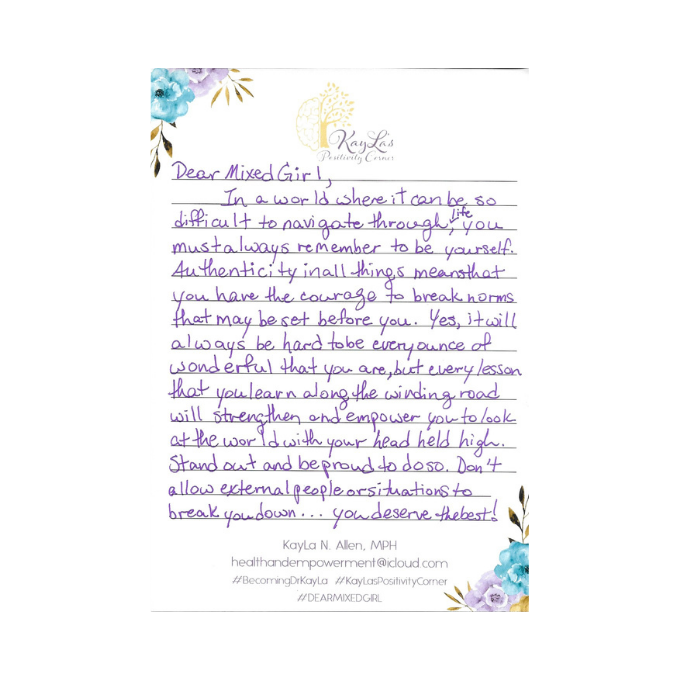 KayLa's
Positivity Corner
Dear Mixed Girl,
In a world where it can be so
difficult to navigate through life, you
must always remember to be yourself.
Authenticity in all things means that
you have the courage to break norms
that may be set before you. Yes, it will
always be hard to be every ounce of
wonderful that you are, but every lesson
that you learn along the winding road
will strengthen and empower you to look
at the world with your head held high.
Stand out and be proud to do so. Don't
allow external people or situations to
break you down... you deserve the best!
KayLa N. Allen, MPH
healthandempowerment@icloud.com
#BecomingDrKayLa #KayLasPositivityCorner
#DEARMIXEDGIRL